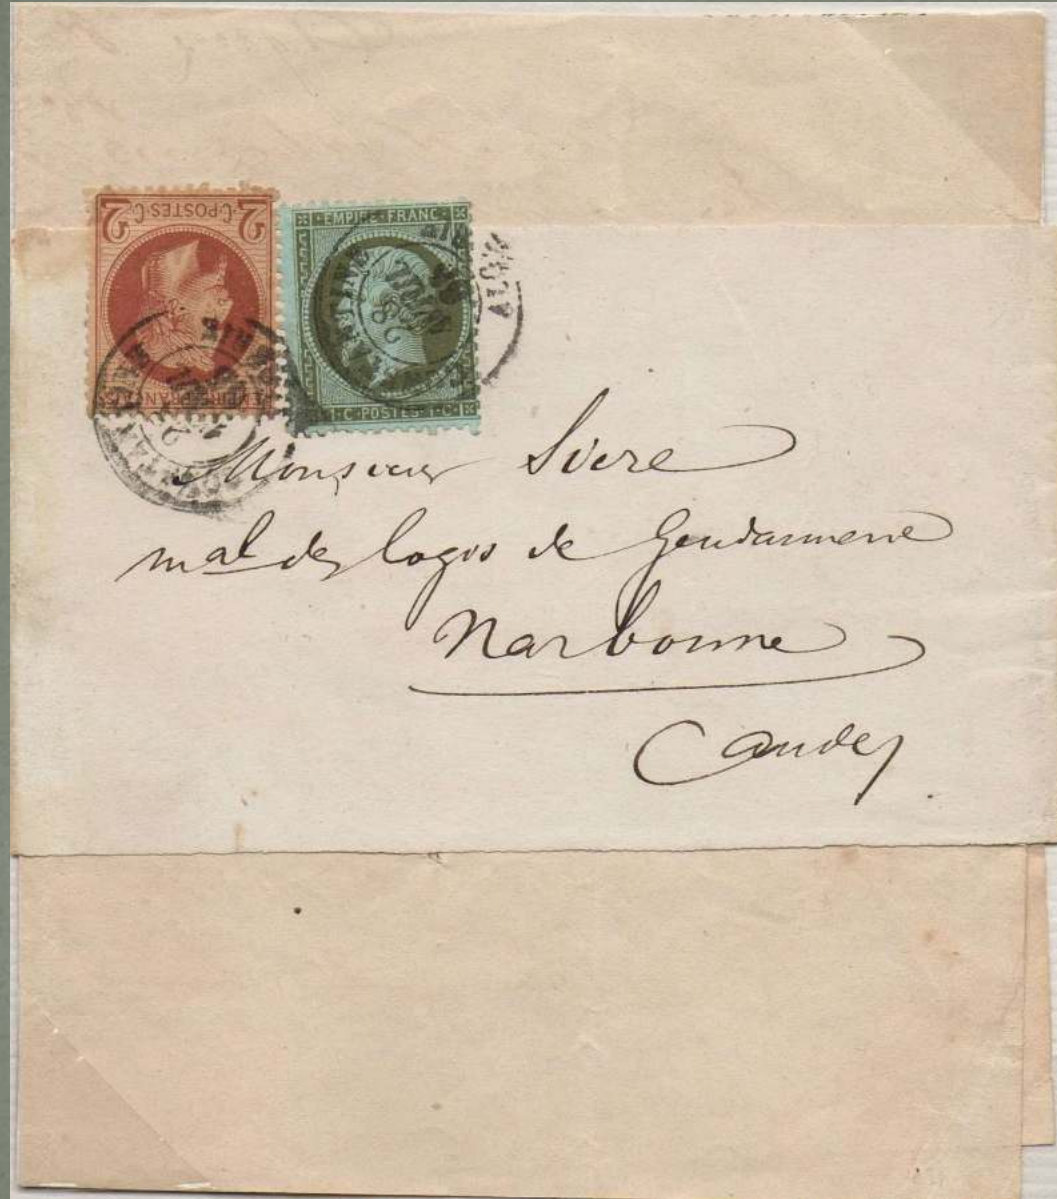 2 C·POSTES·C 2
EMPIRE FRANÇAIS
EMPIRE FRANC
1·C·POSTES·1·C·1
28
Monsieur Sicre
mal des logis de Gendarmerie
Narbonne
Aude